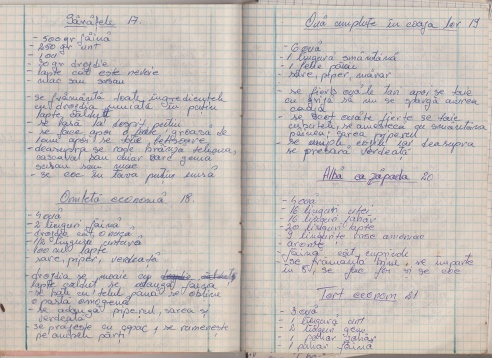 Sărățele 17.
- 500 gr făină
- 250 gr unt
- 1 ou
- 30 gr drojdie
- lapte cât este nevoie
- mac sau susan
- se frământă toate ingredientele
cu drojdia muiată în puțin
lapte călduț
- se lasă la dospit puțin
- se face apoi o foaie, groasă de
- deasupra se rade brânză telemea,
cașcaval sau doar sare gemă
susan sau mac
- se coc în tava puțin unsă
Omletă economă 18.
- 4 ouă
2 linguri făină
drojdie cât o nucă
1/2 lingură
100 ml lapte
sare, piper, verdeață
- drojdia se moaie cu
lapte căldut se adaugă făina
- se bate cu telul până se obține
o pastă omogenă
- se adaugă piperul, sarea și
verdeața
- se prăjește cu capac, se rumenește
pe ambele părți
Ouă umplute în coaja lor 19
- 6 ouă
- 1 lingură smântână
- 1 felie pâine
- sare, piper, mărar
- se fierb ouăle tari apoi se taie
cu grijă să nu se spargă
coaja
- se scot ouăle fierte se taie
se amestecă cu smântâna
pâinea, sarea piperul
- se umple cojile iar deasupra
se presară verdeață
Albă ca zăpada 20
- 4 ouă
16 linguri
16 linguri zahăr
20 linguri lapte
2 lingurițe amoniac
- arome
- făină cât cuprinde
se frământă totul, se împarte
în 5, se fac foi și se coc
Tort econom 21
- 3 ouă
- 1 lingură unt
- 2 linguri
- 1 pahar zahăr
- 1 pahar făină